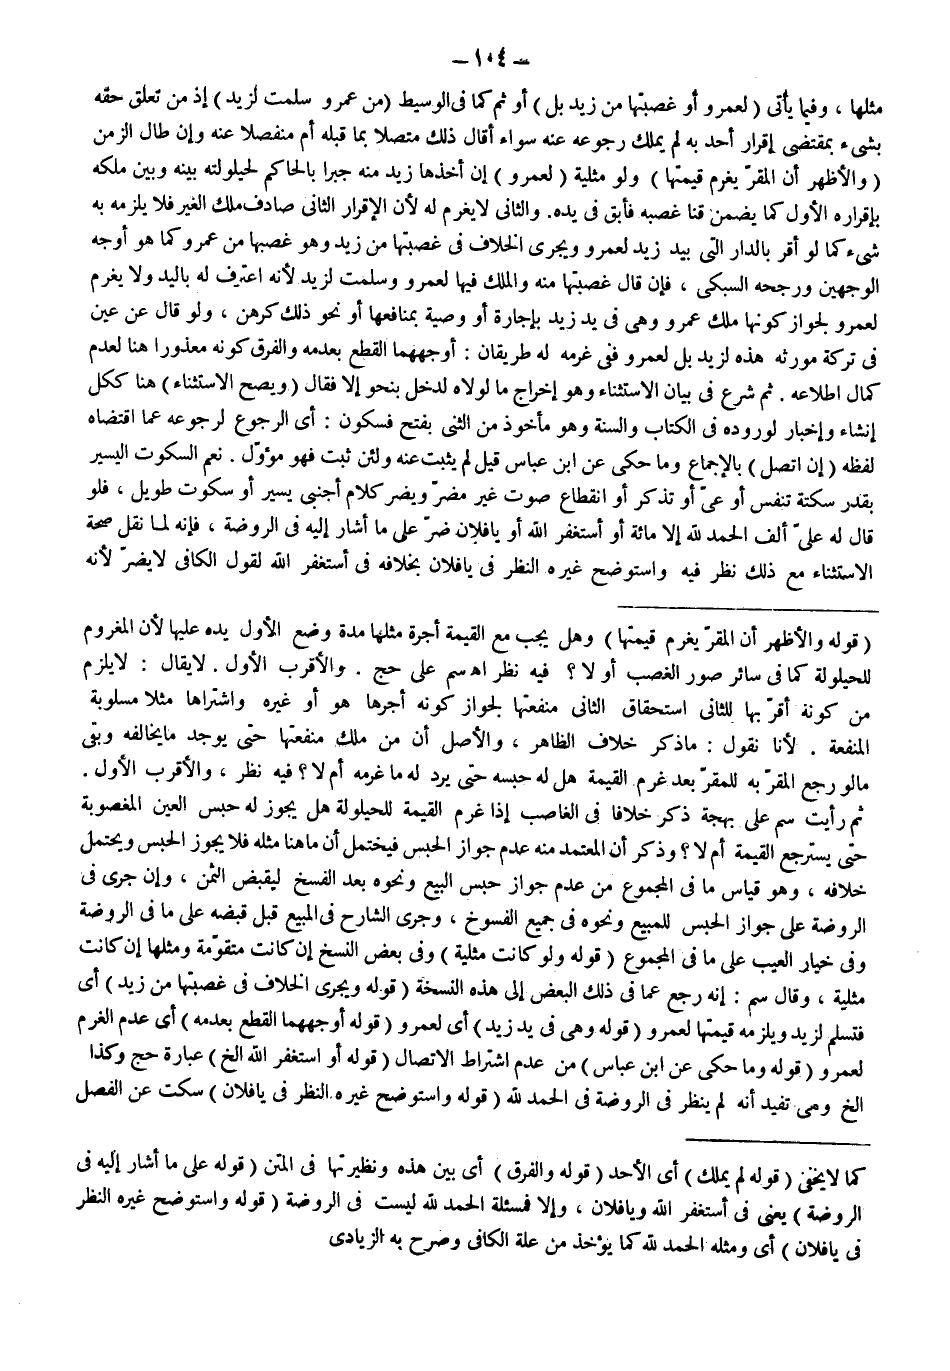 – ١٠٤ –
مثلها ، وفيما يأتى ( لعمرو أو غصبتها من زيد بل ) أو ثم كما فى الوسيط ( من عمرو سلمت لزيد ) إذ من تعلق حقه
بشىء بمقتضى إقرار أحد به لم يملك رجوعه عنه سواء أقال ذلك متصلا بما قبله أم منفصلا عنه وإن طال الزمن
( والأظهر أن المقرّ يغرم قيمتها ) ولو مثلية ( لعمرو ) إن أخذها زيد منه جبرا بالحاكم لحيلولته بينه وبين ملكه
بإقراره الأول كما يضمن قنا غصبه فأبق فى يده. والثانى لايغرم له لأن الإقرار الثانى صادف ملك الغير فلا يلزمه به
شىء كما لو أقر بالدار التى بيد زيد لعمرو ويجرى الخلاف فى غصبتها من زيد وهو غصبها من عمرو كما هو أوجه
الوجهين ورجحه السبكى ، فإن قال غصبتها منه والملك فيها لعمرو وسلمت لزيد لأنه اعترف له باليد ولا يغرم
لعمرو لجواز كونها ملك عمرو وهى فى يد زيد بإجارة أو وصية بمنافعها أو نحو ذلك كرهن ، ولو قال عن عين
فى تركة مورثه هذه لزيد بل لعمرو ففى غرمه له طريقان : أوجههما القطع بعدمه والفرق كونه معذورا هنا لعدم
كمال اطلاعه . ثم شرع فى بيان الاستثناء وهو إخراج ما لولاه لدخل بنحو إلا فقال ( ويصح الاستثناء ) هنا ككل
إنشاء وإخبار لوروده فى الكتاب والسنة وهو مأخوذ من الثنى بفتح فسكون : أى الرجوع لرجوعه عما اقتضاه
لفظه ( إن اتصل ) بالإجماع وما حكى عن ابن عباس قيل لم يثبت عنه ولئن ثبت فهو مؤوّل . نعم السكوت اليسير
بقدر سكتة تنفس أو عىّ أو تذكر أو انقطاع صوت غير مضرّ ويضر كلام أجنبى يسير أو سكوت طويل ، فلو
قال له علىّ ألف الحمد لله إلا مائة أو أستغفر الله أو يافلان ضرّ على ما أشار إليه فى الروضة ، فإنه لما نقل صحة
الاستثناء مع ذلك نظر فيه واستوضح غيره النظر فى يافلان بخلافه فى أستغفر الله لقول الكافى لايضرّ لأنه
( قوله والأظهر أن المقرّ يغرم قيمتها ) وهل يجب مع القيمة أجرة مثلها مدة وضع الأول يده عليها لأن المغروم
للحيلولة كما فى سائر صور الغصب أو لا ؟ فيه نظر اه سم على حج . والأقرب الأول . لايقال : لايلزم
من كونة أقرّ بها للثانى استحقاق الثانى منفعتها لجواز كونه أجرها هو أو غيره واشتراها مثلا مسلوبة
المنفعة . لأنا نقول : ماذكر خلاف الظاهر ، والأصل أن من ملك منفعتها حتى يوجد مايخالفه وبقى
مالو رجع المقرّ به للمقرّ بعد غرم القيمة هل له حبسه حتى يرد له ما غرمه أم لا ؟ فيه نظر ، والأقرب الأول .
ثم رأيت سم على بهجة ذكر خلافا فى الغاصب إذا غرم القيمة للحيلولة هل يجوز له حبس العين المغصوبة
حتى يسترجع القيمة أم لا ؟ وذكر أن المعتمد منه عدم جواز الحبس فيحتمل أن ماهنا مثله فلا يجوز الحبس ويحتمل
خلافه ، وهو قياس ما فى المجموع من عدم جواز حبس البيع ونحوه بعد الفسخ ليقبض الثمن ، وإن جرى فى
الروضة على جواز الحبس للمبيع ونحوه فى جميع الفسوخ ، وجرى الشارح فى المبيع قبل قبضه على ما فى الروضة
وفى خيار العيب على ما فى المجموع ( قوله ولو كانت مثلية ) وفى بعض النسخ إن كانت متقوّمة ومثلها إن كانت
مثلية ، وقال سم : إنه رجع عما فى ذلك البعض إلى هذه النسخة ( قوله ويجرى الخلاف فى غصبتها من زيد ) أى
فتسلم لزيد ويلزمه قيمتها لعمرو ( قوله وهى فى يد زيد ) أى لعمرو ( قوله أوجههما القطع بعدمه ) أى عدم الغرم
لعمرو ( قوله وما حكى عن ابن عباس ) من عدم اشتراط الاتصال ( قوله أو استغفر الله الخ ) عبارة حج وكذا
الخ وهى تفيد أنه لم ينظر فى الروضة فى الحمد لله ( قوله واستوضح غيره النظر فى يافلان ) سكت عن الفصل
كما لايخفى ( قوله لم يملك ) أى الأحد ( قوله والفرق ) أى بين هذه ونظيرتها فى المتن ( قوله على ما أشار إليه فى
الروضة ) يعنى فى أستغفر الله ويافلان ، وإلا فمسئلة الحمد لله ليست فى الروضة ( قوله واستوضح غيره النظر
فى يافلان ) أى ومثله الحمد لله كما يؤخذ من علة الكافى وصرح به الزيادى